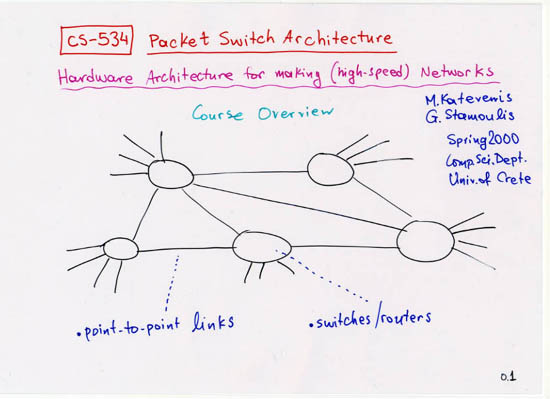 CS-534 Packet Switch Architecture
Hardware Architecture for making (high-speed) Networks
Course Overview
M. Katevenis
G. Stamoulis
Spring 2000
Comp. Sci. Dept.
Univ. of Crete
• point-to-point links
• switches/routers
0.1